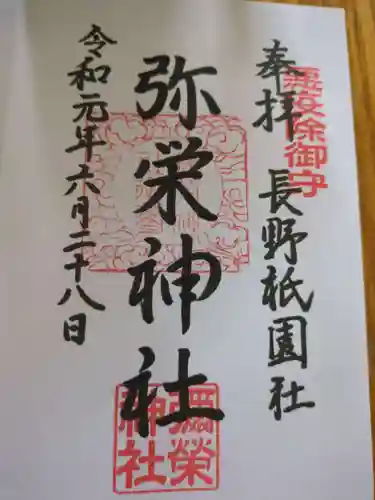 奉拝 長野祇園社
悪疫除御守
弥栄神社
彌榮神社
令和元年六月二十八日